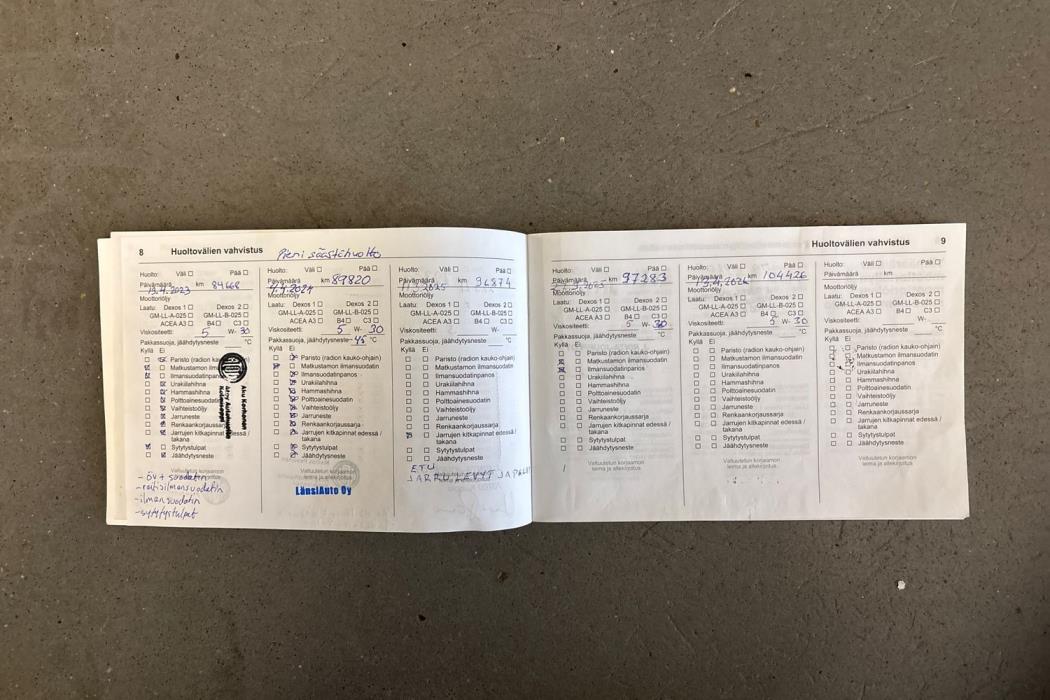 8 Huoltovälien vahvistus
Pieni säästöhuolto
Huolto: Väli Pää
Päivämäärä km 84668
13.4.2023
Moottoriöljy
Laatu: Dexos 1 Dexos 2
GM-LL-A-025 GM-LL-B-025
ACEA A3 B4 C3
Viskositeetti: 5 W- 30
Pakkassuoja, jäähdytysneste °C
Kyllä Ei
Paristo (radion
Matkustamon
Ilmansuodatinpanos
Urakiilahihna
Hammashihna
Polttoainesuodatin
Vaihteistoöljy
Jarruneste
Renkaankorjaussarja
Jarrujen kitkapinnat edessä /
takana
Sytytystulpat
Jäähdytysneste
Valtuutetun korjaamon
- öv + suodatin
- raitisilmansuodatin
- ilmansuodatin
- sytytystulpat
Huolto: Väli Pää
Päivämäärä km 89820
4.4.2024
Moottoriöljy
Laatu: Dexos 1 Dexos 2
GM-LL-A-025 GM-LL-B-025
ACEA A3 B4 C3
Viskositeetti: 5 W- 30
Pakkassuoja, jäähdytysneste -45 °C
Kyllä Ei
Paristo (radion kauko-ohjain)
Matkustamon ilmansuodatin
Ilmansuodatinpanos
Urakiilahihna
Hammashihna
Polttoainesuodatin
Vaihteistoöljy
Jarruneste
Renkaankorjaussarja
Jarrujen kitkapinnat edessä /
takana
Sytytystulpat
Jäähdytysneste
Valtuutetun korjaamon
leima ja allekirjoitus
LänsiAuto Oy
Huolto: Väli Pää
Päivämäärä km 96874
Moottoriöljy
Laatu: Dexos 1 Dexos 2
GM-LL-A-025 GM-LL-B-025
ACEA A3 B4 C3
Viskositeetti: W-
Pakkassuoja, jäähdytysneste °C
Kyllä Ei
Paristo (radion kauko-ohjain)
Matkustamon ilmansuodatin
Ilmansuodatinpanos
Urakiilahihna
Hammashihna
Polttoainesuodatin
Vaihteistoöljy
Jarruneste
Renkaankorjaussarja
Jarrujen kitkapinnat edessä /
takana
Sytytystulpat
Jäähdytysneste
ETU
JARRULEVYT JA
Huoltovälien vahvistus 9
Huolto: Väli Pää
Päivämäärä km 97283
Moottoriöljy
Laatu: Dexos 1 Dexos 2
GM-LL-A-025 GM-LL-B-025
ACEA A3 B4 C3
Viskositeetti: 5 W- 30
Pakkassuoja, jäähdytysneste °C
Kyllä Ei
Paristo (radion kauko-ohjain)
Matkustamon ilmansuodatin
Ilmansuodatinpanos
Urakiilahihna
Hammashihna
Polttoainesuodatin
Vaihteistoöljy
Jarruneste
Renkaankorjaussarja
Jarrujen kitkapinnat edessä /
takana
Sytytystulpat
Jäähdytysneste
Valtuutetun korjaamon
leima ja allekirjoitus
Huolto: Väli Pää
Päivämäärä km 104426
Moottoriöljy
Laatu: Dexos 1 Dexos 2
GM-LL-A-025 GM-LL-B-025
ACEA A3 B4 C3
Viskositeetti: 5 W- 30
Pakkassuoja, jäähdytysneste °C
Kyllä Ei
Paristo (radion kauko-ohjain)
Matkustamon ilmansuodatin
Ilmansuodatinpanos
Urakiilahihna
Hammashihna
Polttoainesuodatin
Vaihteistoöljy
Jarruneste
Renkaankorjaussarja
Jarrujen kitkapinnat edessä /
takana
Sytytystulpat
Jäähdytysneste
Valtuutetun korjaamon
leima ja allekirjoitus
Huolto: Väli Pää
Päivämäärä km
Moottoriöljy
Laatu: Dexos 1 Dexos 2
GM-LL-A-025 GM-LL-B-025
ACEA A3 B4 C3
Viskositeetti: W-
Pakkassuoja, jäähdytysneste °C
Kyllä Ei
Paristo (radion kauko-ohjain)
Matkustamon ilmansuodatin
Ilmansuodatinpanos
Urakiilahihna
Hammashihna
Polttoainesuodatin
Vaihteistoöljy
Jarruneste
Renkaankorjaussarja
Jarrujen kitkapinnat edessä /
takana
Sytytystulpat
Jäähdytysneste
Valtuutetun korjaamon
leima ja allekirjoitus